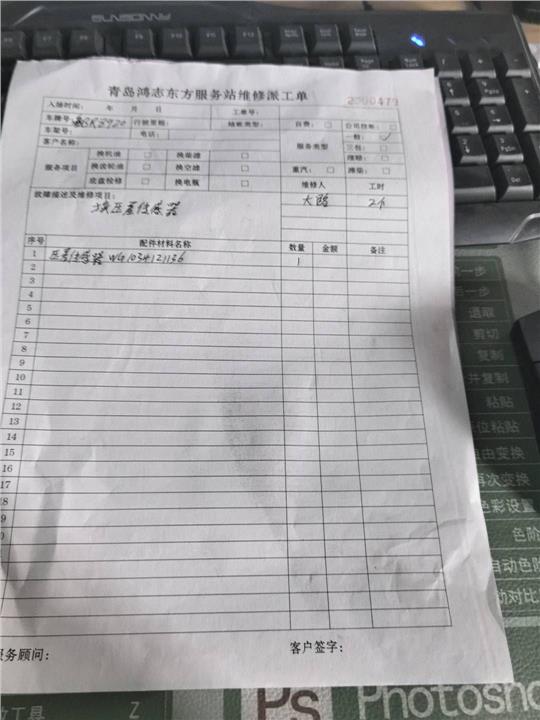 SUNSONNY
青岛鸿志东方服务站维修派工单
2000479
入场时间: 年 月 日 工单号:
车牌号: SR8920 行驶里程: 结账类型: 自费: □ 公司挂账: □
车架号: 电话: 服务类型 一般: ✓
客户名称: 三包: □
服务项目 换机油 □ 换柴滤 □ 理赔: □
换齿轮油 □ 换空滤 □ 重汽: □ 潍柴: □
底盘检修 □ 换电瓶 □ 维修人 工时
故障描述及维修项目: 大鹏 2个
换压差传感器
序号 配件材料名称 数量 金额 备注
1 压差传感器 WG1034121136 1
2
3
4
5
6
7
8
9
10
11
12
13
14
15
16
17
服务顾问: 客户签字:
Num
Lock
后一步
退取
剪切
复制
并复制
粘贴
位粘贴
自由变换
再次变换
色彩设置
色阶
自动色阶
动对比
工具 Z
Ps Photosho